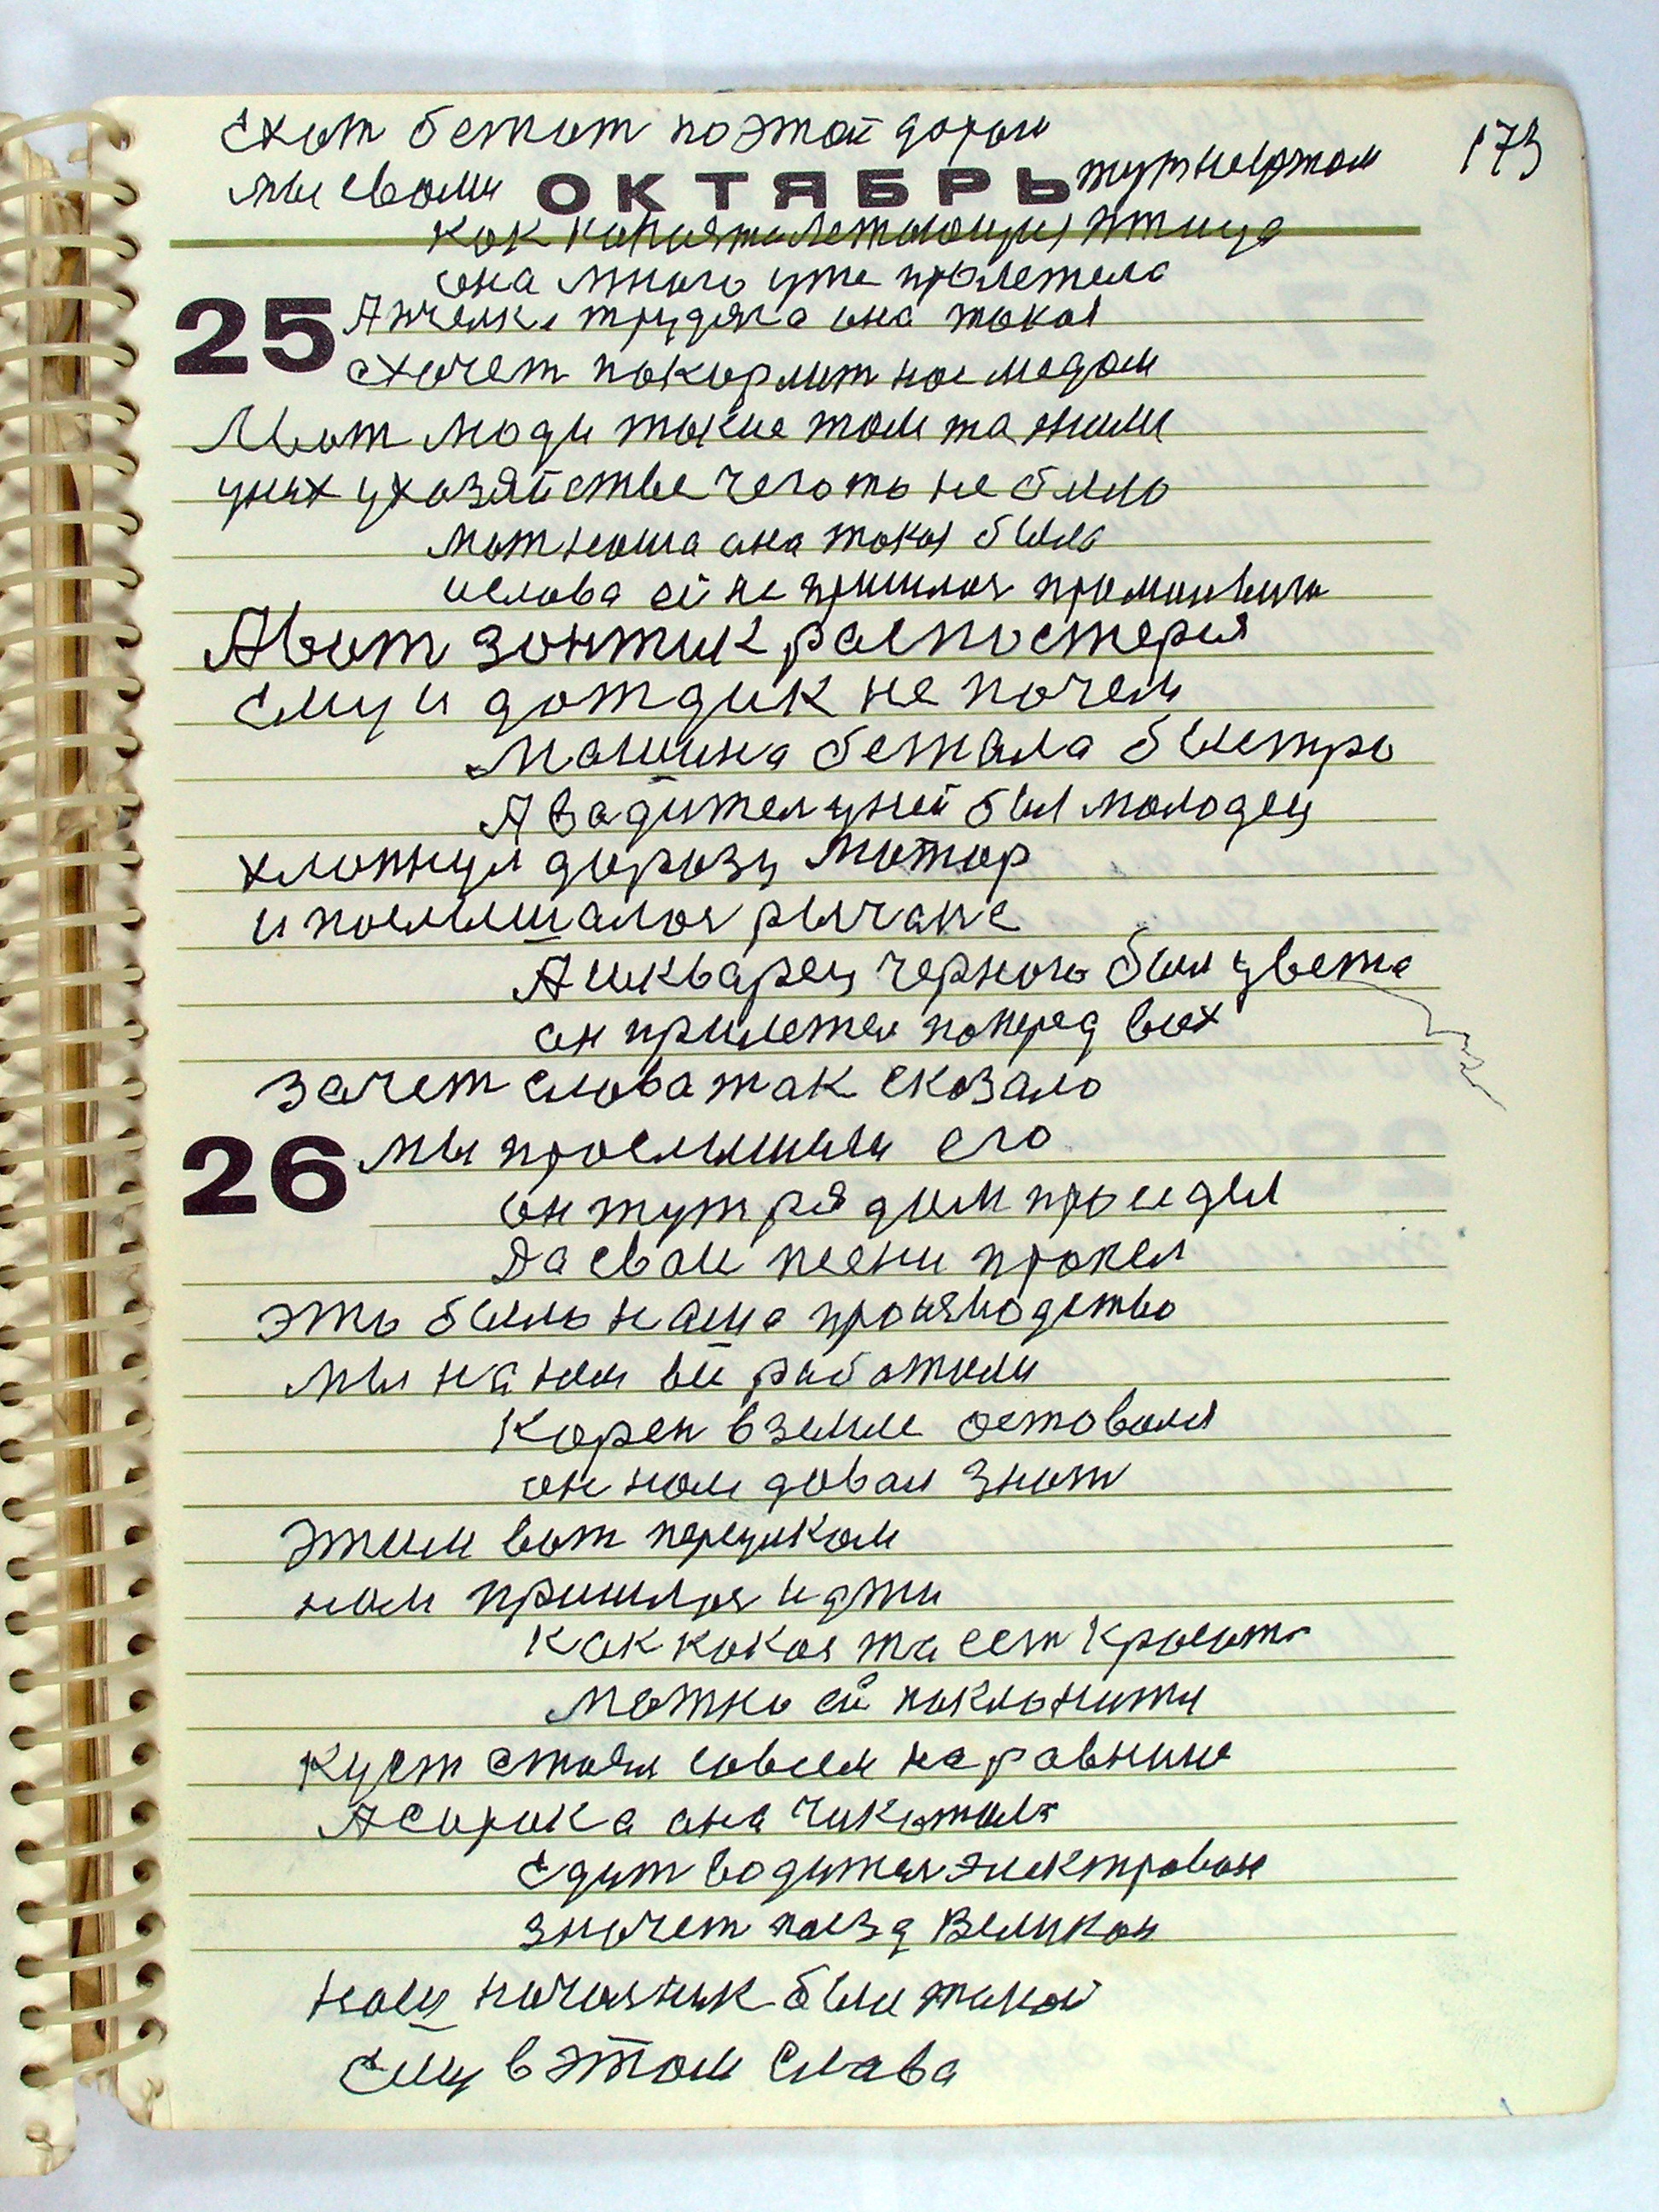 173
схот бежит по этой дороги
мы свами ОКТЯБРЬ тут
как летающия птица
она много уже пролетела
25 А пчелка трудяга она такая
схочет покормит нас медом
Мвот люди такие там та жили
уних ухозяйстве чегото не было
мат наша она такая была
ислова ей не пришлося
Авот зонтик распостерся
ему и дождик не почем
машина бежала быстро
А вадител уней был молодец
хлопнул дорозу мотор
и послышалося рычане
А скварец черного был цвета
он прилетел поперед всех
зачем слова так сказало
26 мы прослышали его
он тут рядом проседел
Да свои песни пропел
это было наша производство
мы на нем все работали
Корен вземле оставался
он нам давал знат
этим вот переулком
нам пришлося идти
как какоя та ест красота
можно ей поклонитя
куст стоял совсем на равнине
А сорока она чикотала
Едит водител электровоза
значет поезд Великан
наш начальник был такой
ему в этом слава